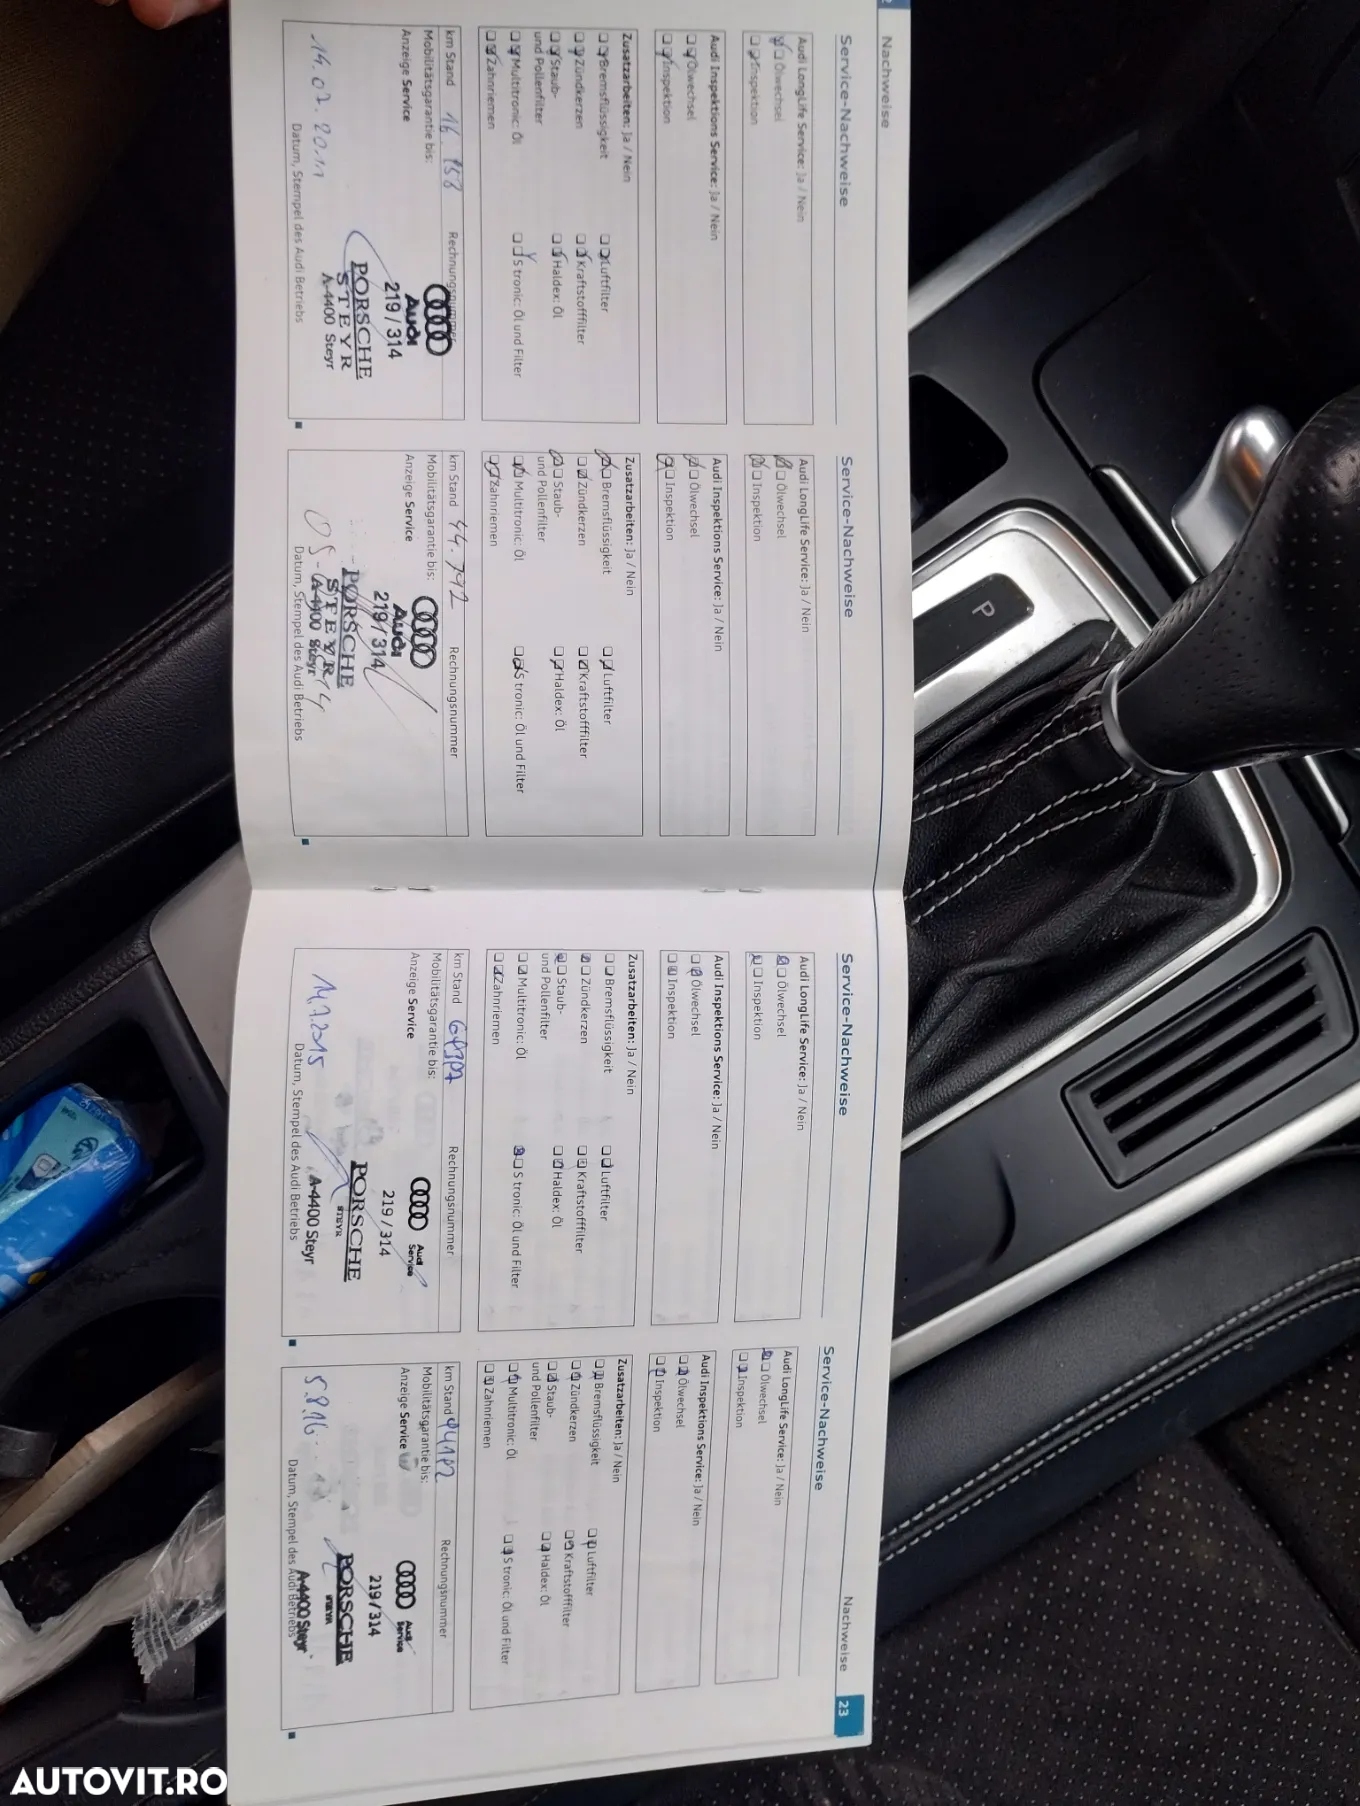 Nachweise
Service-Nachweise
Audi LongLife Service: Ja / Nein
Ölwechsel
Inspektion
Audi Inspektions Service: Ja / Nein
Ölwechsel
Inspektion
Zusatzarbeiten: Ja / Nein
Bremsflüssigkeit Luftfilter
Zündkerzen Kraftstofffilter
Staub- Haldex: Öl
und Pollenfilter
Multitronic: Öl S tronic: Öl und Filter
Zahnriemen
km Stand 16.158 Rechnungsnummer
Mobilitätsgarantie bis:
Anzeige Service
Audi
219/314
PORSCHE
STEYR
A-4400 Steyr
14.07.2011
Datum, Stempel des Audi Betriebs
Service-Nachweise
Audi LongLife Service: Ja / Nein
Ölwechsel
Inspektion
Audi Inspektions Service: Ja / Nein
Ölwechsel
Inspektion
Zusatzarbeiten: Ja / Nein
Bremsflüssigkeit Luftfilter
Zündkerzen Kraftstofffilter
Staub- Haldex: Öl
und Pollenfilter
Multitronic: Öl S tronic: Öl und Filter
Zahnriemen
km Stand 44.792 Rechnungsnummer
Mobilitätsgarantie bis:
Anzeige Service
Audi
219/314
PORSCHE
STEYR
A-4400 Steyr
Datum, Stempel des Audi Betriebs
Service-Nachweise
Audi LongLife Service: Ja / Nein
Ölwechsel
Inspektion
Audi Inspektions Service: Ja / Nein
Ölwechsel
Inspektion
Zusatzarbeiten: Ja / Nein
Bremsflüssigkeit Luftfilter
Zündkerzen Kraftstofffilter
Staub- Haldex: Öl
und Pollenfilter
Multitronic: Öl S tronic: Öl und Filter
Zahnriemen
km Stand Rechnungsnummer
Mobilitätsgarantie bis:
Anzeige Service
Audi
Service
219/314
PORSCHE
STEYR
A-4400 Steyr
14.7.2015
Datum, Stempel des Audi Betriebs
Nachweise 23
Service-Nachweise
Audi LongLife Service: Ja / Nein
Ölwechsel
Inspektion
Audi Inspektions Service: Ja / Nein
Ölwechsel
Inspektion
Zusatzarbeiten: Ja / Nein
Bremsflüssigkeit Luftfilter
Zündkerzen Kraftstofffilter
Staub- Haldex: Öl
und Pollenfilter
Multitronic: Öl S tronic: Öl und Filter
Zahnriemen
km Stand Rechnungsnummer
Mobilitätsgarantie bis:
Anzeige Service
Audi
Service
219/314
PORSCHE
STEYR
A-4400 Steyr
5.8.16
Datum, Stempel des Audi Betriebs
P
AUTOVIT.RO